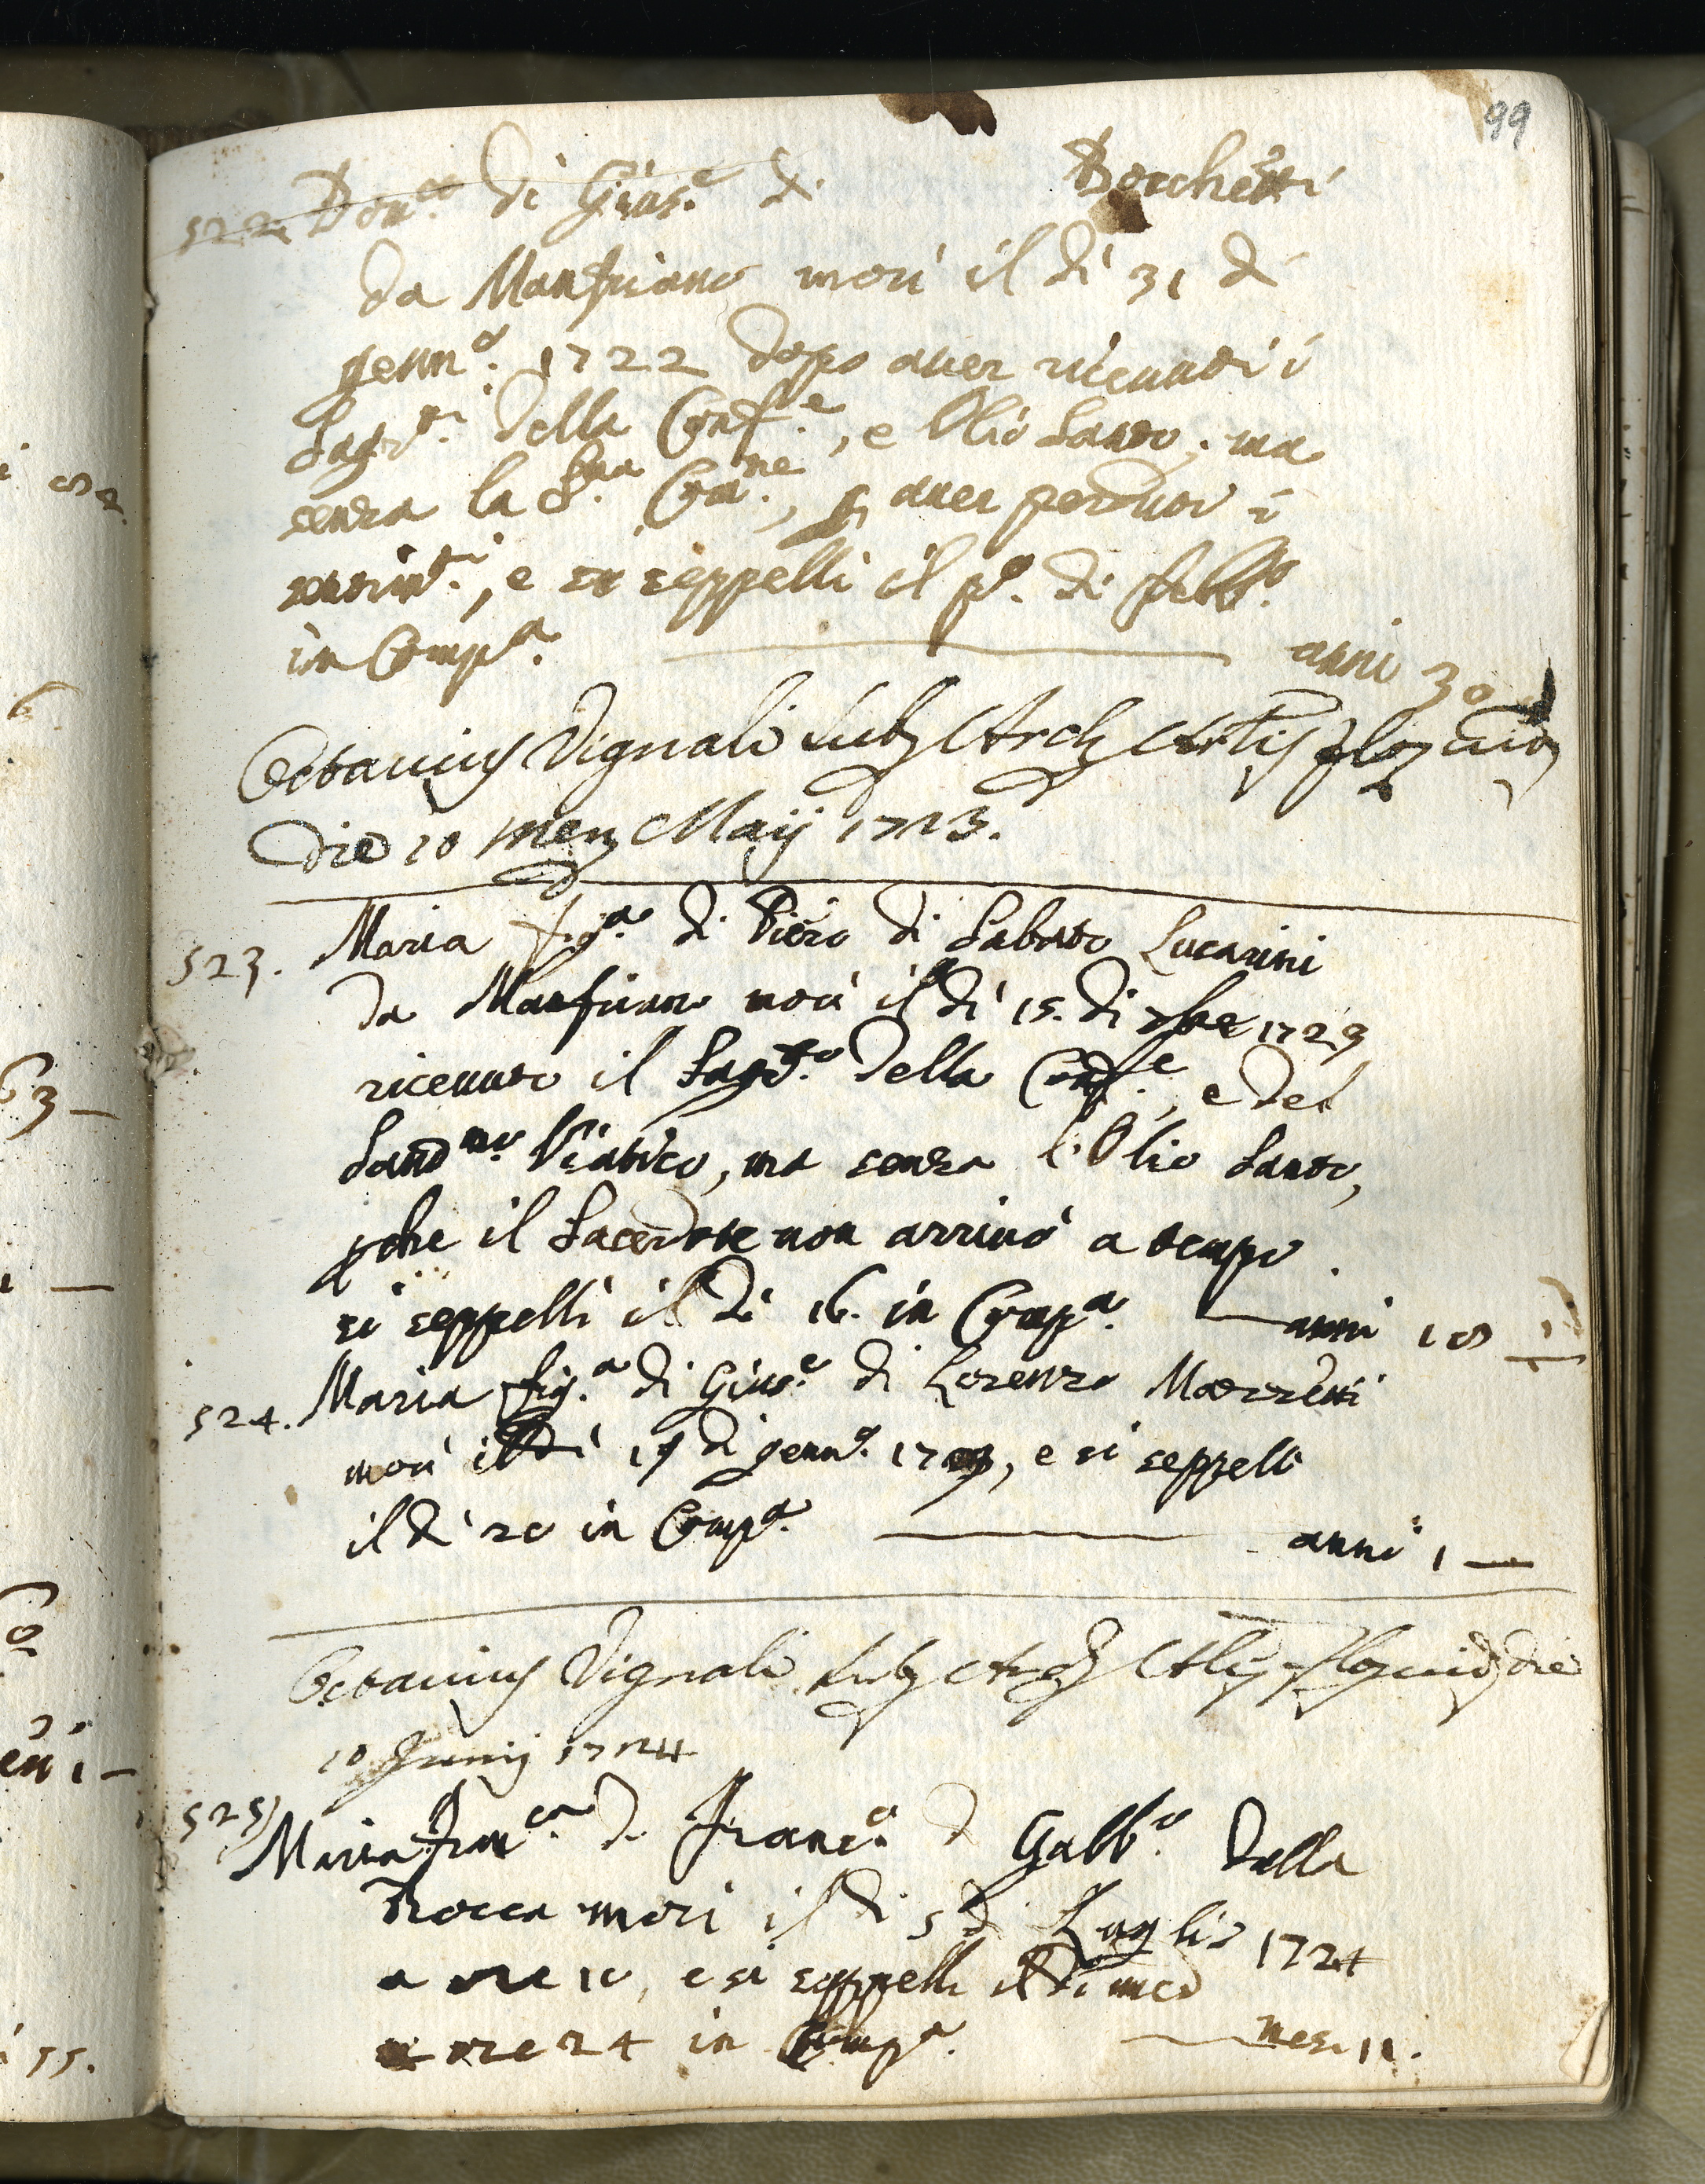 99
522. Dom.co di Gius.e di Bocchetti
da Manfriano morì il dì 31 di
genn.o 1722 dopo auer riceuuti i
Sagr.ti della Conf.e, e Olio Santo, ma
senza la S.ma Com.ne, p auer perduti i
sentim.ti, e si seppellì il p.o di febb.o
in Comp.a anni 30
Octauius Vignali Sub Arch
Die 10 Men Maij 1723.
523. Maria fig.a di Piero di Sabato Lucarini
da Manfriano morì il dì 15. di 1723
riceuuto il Sagr.to della Conf.e, e del
Sant.mo Viatico, ma senza l'Olio Santo,
pche il Sacerdote non arriuò a tempo.
si seppellì il dì 16. in Comp.a anni 18
524. Maria fig.a di Gius.e di Lorenzo
morì il dì 19 di genn.o, e si seppellì
il dì 20 in Comp.a anni 1
Octauius Vignali Sub die
10 Junij 1724
525) Maria Fran.ca di Franc.o di Gabb.o dalla
Rocca morì il dì 5 di Luglio 1724
a ore 10, e si seppellì il dì med
a ore 24 in Comp.a mesi 11.